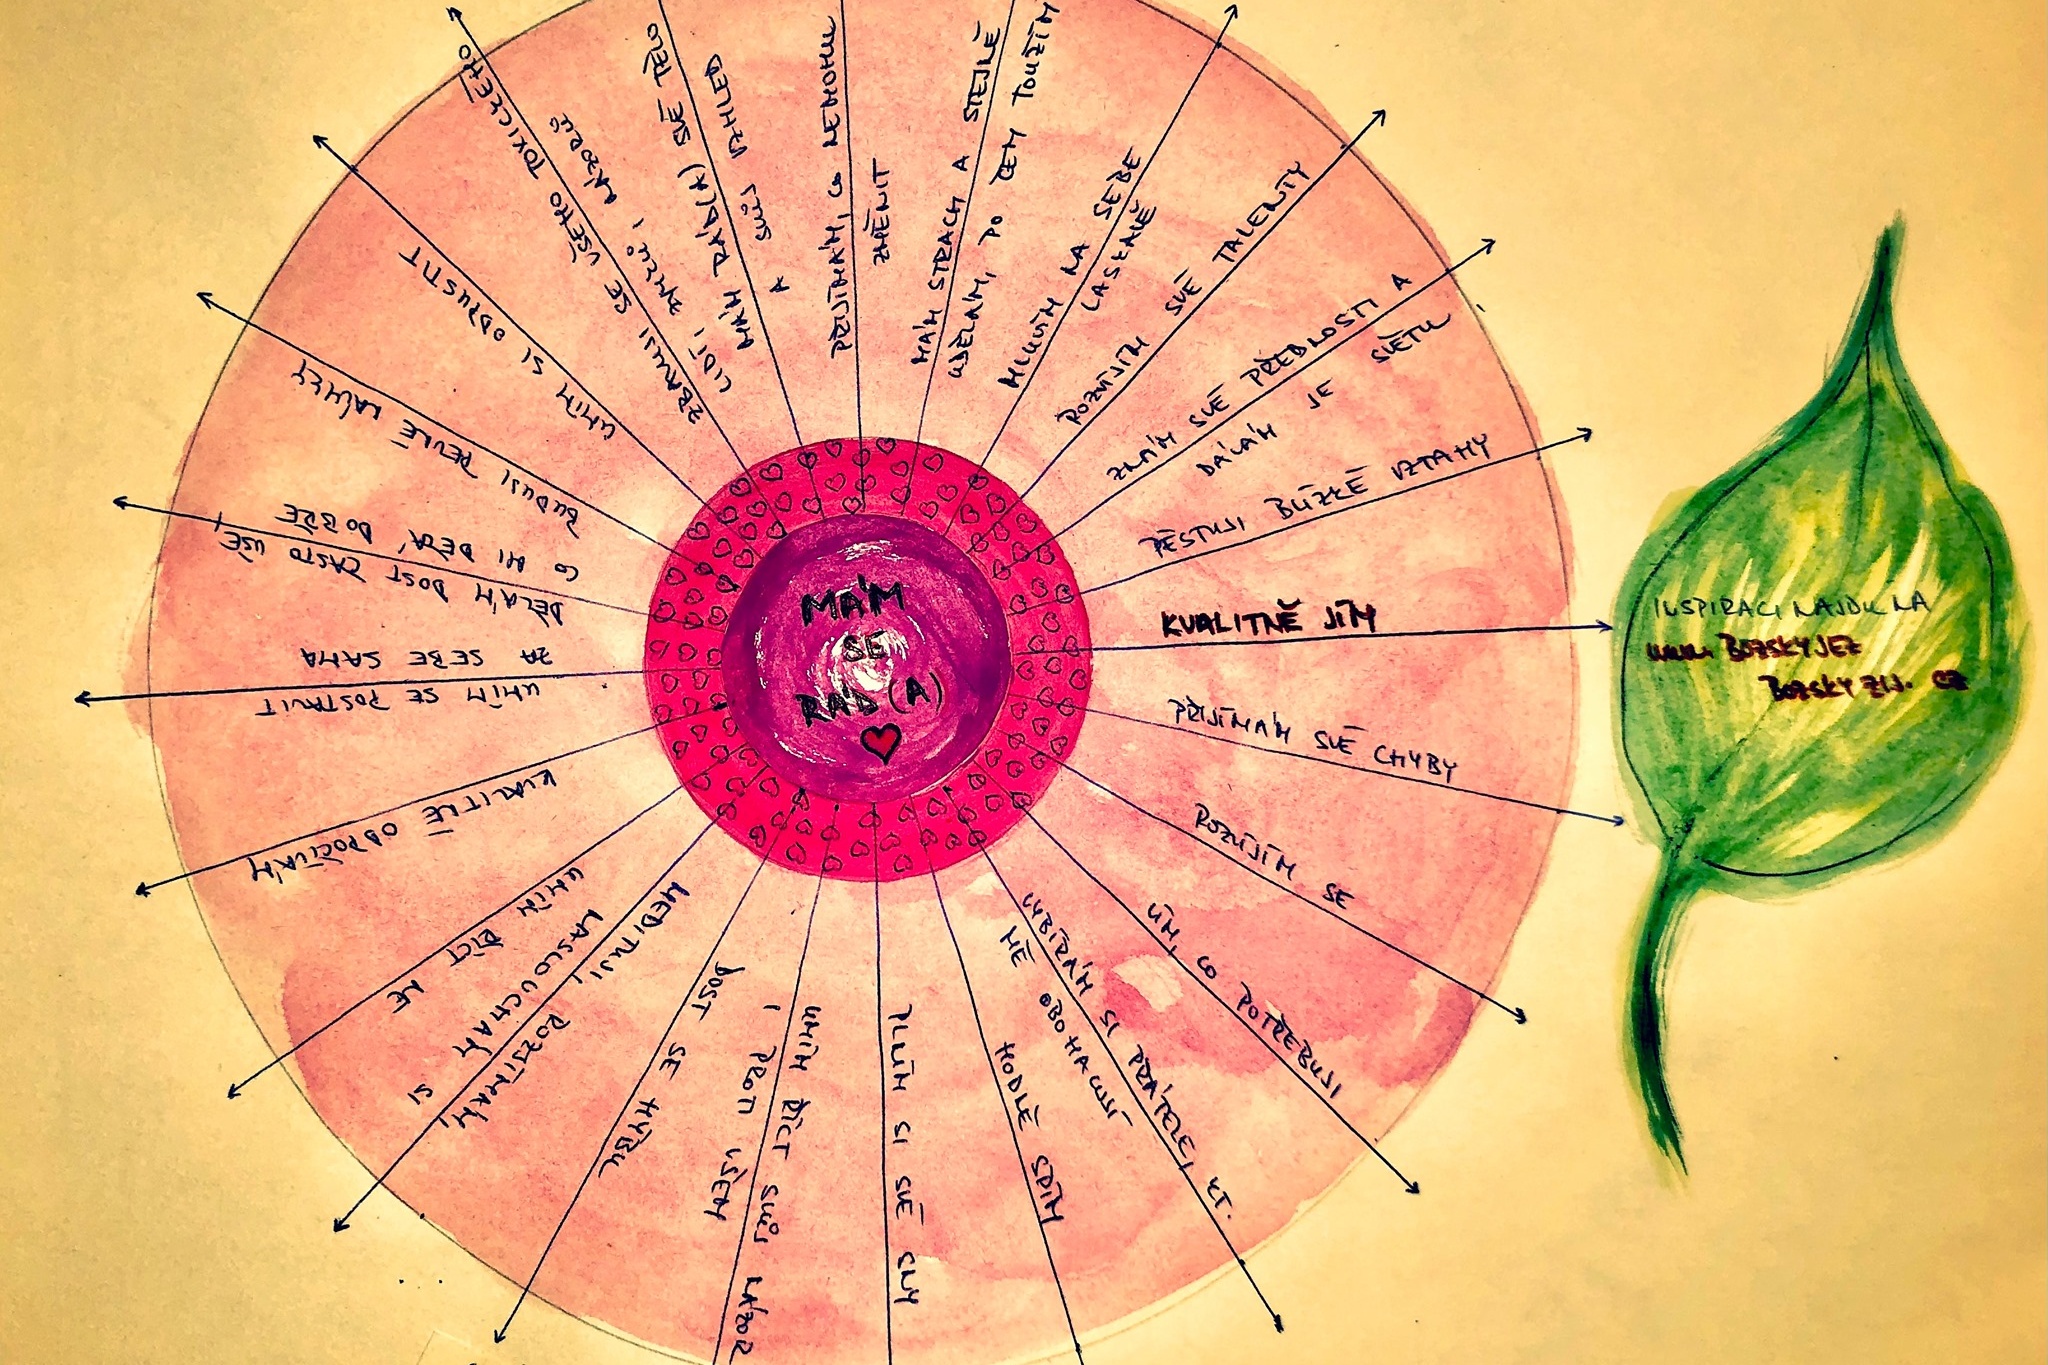 MÁM
SE
RÁD(A)
KVALITNĚ JÍM
PŘIJÍMÁM SVÉ CHYBY
ROZVÍJÍM SE
VÍM, CO POTŘEBUJI
VYBÍRÁM SI PŘÁTELE, KT.
MĚ OBOHACUJÍ
HODNĚ SPÍM
PLNÍM SI SVÉ SNY
UMÍM ŘÍCT SVŮJ NÁZOR
I PROTI VŠEM
DOST SE HÝBU
MEDITUJI, ROZJÍMÁM,
NASLOUCHÁM SI
UMÍM ŘÍCT NE
KVALITNĚ ODPOČÍVÁM
UMÍM SE POSTAVIT
ZA SEBE SAMA
DĚLÁM DOST ČASTO VŠE,
CO MI DĚLÁ DOBŘE
BUDUJI PEVNÉ NÁVYKY
UMÍM SI ODPUSTIT
ZBAVUJI SE VŠEHO TOXICKÉHO
LIDÍ I ZVYKŮ I NÁZORŮ
MÁM RÁD(A) SVÉ TĚLO
A SVŮJ VZHLED
PŘIJÍMÁM, CO NEMOHU
ZMĚNIT
MÁM STRACH A STEJNĚ
UDĚLÁM, PO ČEM TOUŽÍM
MLUVÍM NA SEBE
LASKAVĚ
ROZVÍJÍM SVÉ TALENTY
ZNÁM SVÉ PŘEDNOSTI A
DÁVÁM JE SVĚTU
PĚSTUJI BLÍZKÉ VZTAHY
INSPIRACI NAJDU NA
WWW. BOZSKYJEZ
BOZSKYZIJ. CZ